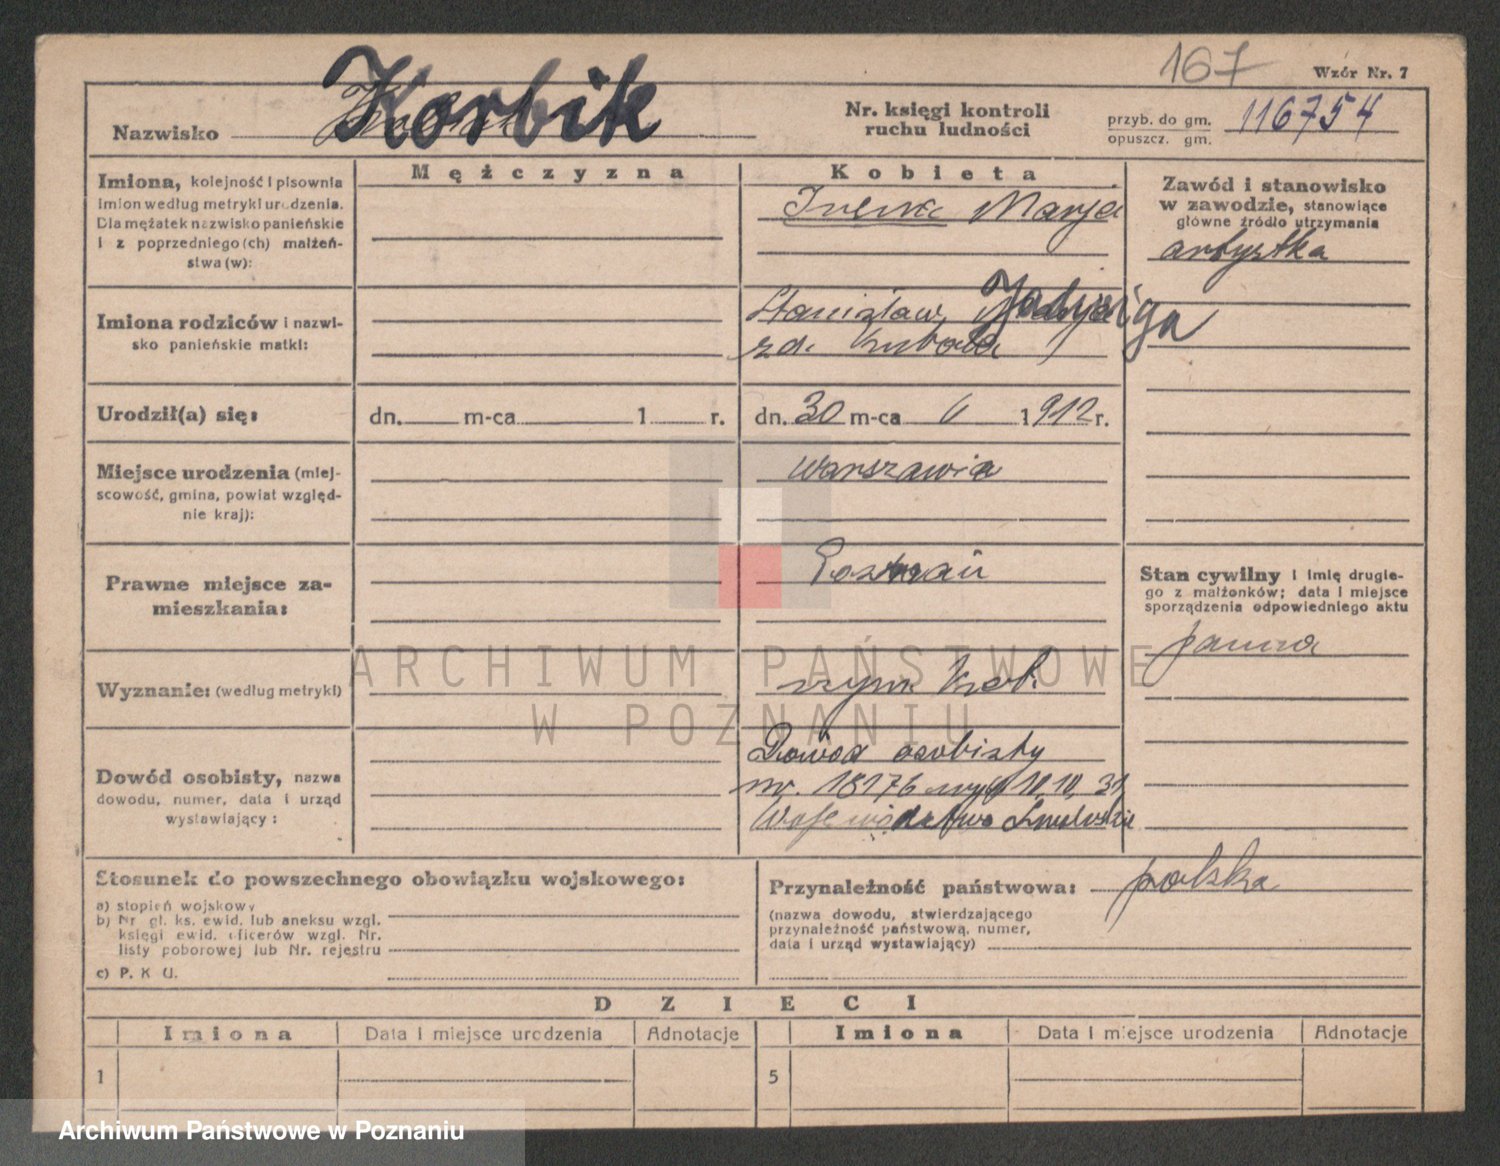 167
Wzór Nr. 7
Nazwisko Korbik
Nr. księgi kontroli
ruchu ludności
przyb. do gm. 116754
opuszcz. gm.
Mężczyzna
Kobieta
Imiona, kolejność i pisownia
imion według metryki urodzenia.
Dla mężatek nazwisko panieńskie
i z poprzedniego (ch) małżeń-
stwa (w):
Irena Marja
Zawód i stanowisko
w zawodzie, stanowiące
główne źródło utrzymania
artystka
Imiona rodziców i nazwi-
sko panieńskie matki:
Stanisław, Jadwiga
zd. Kubala
Urodził(a) się:
dn. m-ca 1 r.
dn. 30 m-ca 6 1912 r.
Miejsce urodzenia (miej-
scowość, gmina, powiat względ-
nie kraj):
Warszawia
Prawne miejsce za-
mieszkania:
Poznań
Stan cywilny i imię drugie-
go z małżonków; data i miejsce
sporządzenia odpowiedniego aktu
panna
Wyznanie: (według metryki)
rzym. kat.
Dowód osobisty, nazwa
dowodu, numer, data i urząd
wystawiający:
Dowód osobisty
nr. 18176 wyd 10.10.31
Województwo
Stosunek do powszechnego obowiązku wojskowego:
a) stopień wojskowy
b) Nr gł. ks. ewid. lub aneksu wzgl.
księgi ewid. oficerów wzgl. Nr.
listy poborowej lub Nr. rejestru
c) P. K U.
Przynależność państwowa: polska
(nazwa dowodu, stwierdzającego
przynależność państwową, numer,
data i urząd wystawiający)
DZIECI
Imiona
Data i miejsce urodzenia
Adnotacje
Imiona
Data i miejsce urodzenia
Adnotacje
1
5
ARCHIWUM PAŃSTWOWE
W POZNANIU
Archiwum Państwowe w Poznaniu